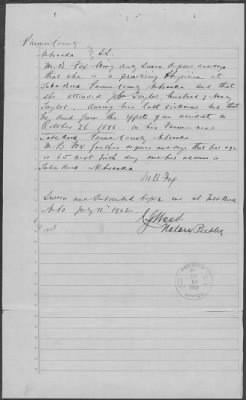 Pawnee County
Nebraska } SS.
M. B. Fox being duly Sworn depose and says
that she is a practicing Physician at
Table Rock Pawnee County Nebraska and that
she attended John Taylor, husband of Mary
Taylor, during his last sickness and that
he died from the effects of an accident on
October 26 1888 on his farm near
Table Rock Pawnee County Nebraska
M B Fox further depose and say that her age
is 65 next birth day and her address is
Table Rock Nebraska
M B Fox
Sworn and Subscribed before me at Table Rock
Neb July 11th 1902.
Notary Public